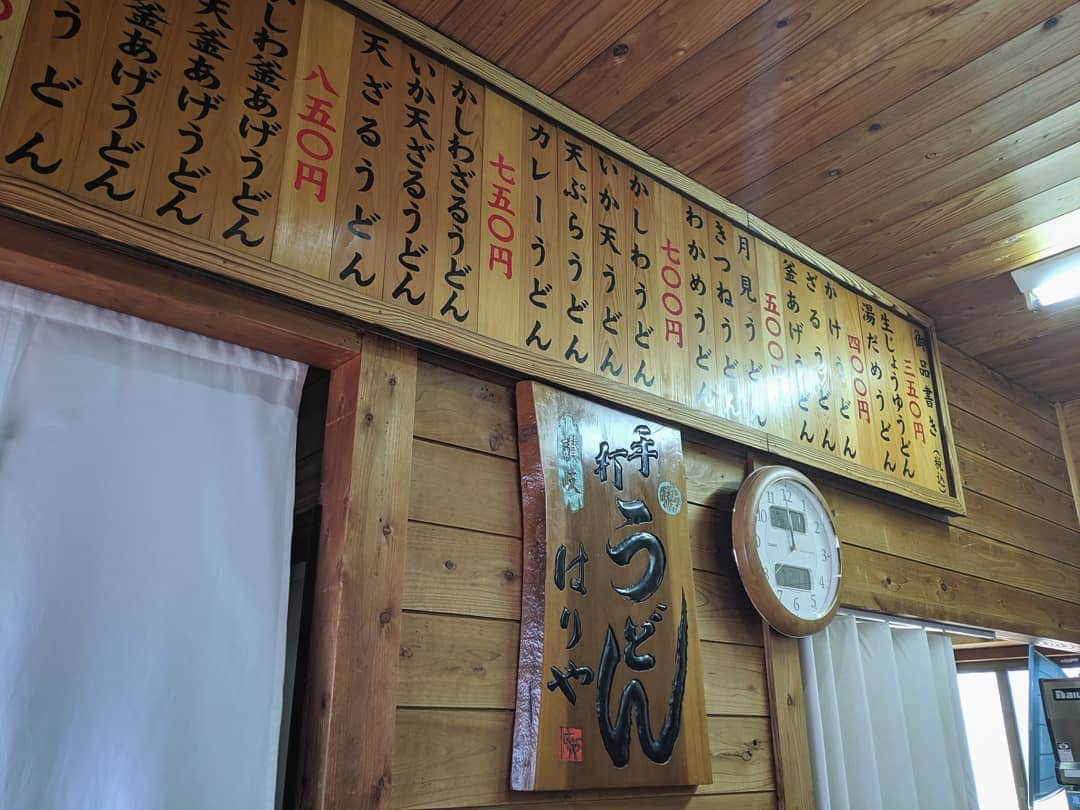 御品書き(税込)
三五〇円
生じょうゆうどん
湯だめうどん
四〇〇円
かけうどん
ざるうどん
釜あげうどん
五〇〇円
月見うどん
きつねうどん
わかめうどん
七〇〇円
かしわうどん
いか天うどん
天ぷらうどん
カレーうどん
七五〇円
かしわざるうどん
いか天ざるうどん
天ざるうどん
八五〇円
かしわ釜あげうどん
天釜あげうどん
釜あげうどん
うどん
手打
うどん
讃岐
はりや
12
11
10
8
7
6
5
4
3
1